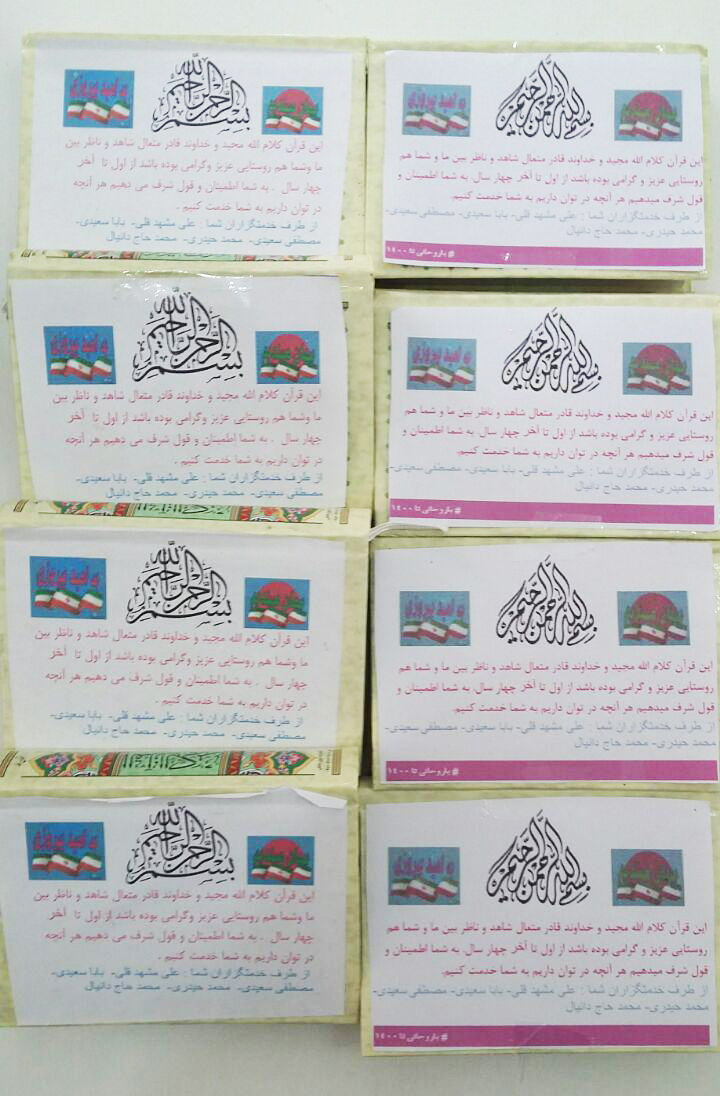 بسم الله الرحمن الرحیم
به امید پیروزی
این قرآن کلام الله مجید و خداوند قادر متعال شاهد و ناظر بین ما و شما هم
روستایی عزیز و گرامی بوده باشد از اول تا آخر چهار سال. به شما اطمینان و
قول شرف میدهیم هر آنچه در توان داریم به شما خدمت کنیم.
از طرف خدمتگزاران شما : علی مشهد قلی- بابا سعیدی- مصطفی سعیدی-
محمد حیدری- محمد حاج دانیال
#باروحانی تا ۱۴۰۰
بسم الله الرحمن الرحیم
به امید پیروزی
این قرآن کلام الله مجید و خداوند قادر متعال شاهد و ناظر بین
ما وشما هم روستایی عزیز وگرامی بوده باشد از اول تا آخر
چهار سال . به شما اطمینان و قول شرف می دهیم هر آنچه
در توان داریم به شما خدمت کنیم .
از طرف خدمتگزاران شما : علی مشهد قلی- بابا سعیدی-
مصطفی سعیدی- محمد حیدری- محمد حاج دانیال
بسم الله الرحمن الرحیم
به امید پیروزی
این قرآن کلام الله مجید و خداوند قادر متعال شاهد و ناظر بین ما و شما هم
روستایی عزیز و گرامی بوده باشد از اول تا آخر چهار سال. به شما اطمینان و
قول شرف میدهیم هر آنچه در توان داریم به شما خدمت کنیم.
از طرف خدمتگزاران شما : علی مشهد قلی- بابا سعیدی- مصطفی سعیدی-
محمد حیدری- محمد حاج دانیال
#باروحانی تا ۱۴۰۰
بسم الله الرحمن الرحیم
به امید پیروزی
این قرآن کلام الله مجید و خداوند قادر متعال شاهد و ناظر بین
ما وشما هم روستایی عزیز وگرامی بوده باشد از اول تا آخر
چهار سال . به شما اطمینان و قول شرف می دهیم هر آنچه
در توان داریم به شما خدمت کنیم .
از طرف خدمتگزاران شما : علی مشهد قلی- بابا سعیدی-
مصطفی سعیدی- محمد حیدری- محمد حاج دانیال
بسم الله الرحمن الرحیم
به امید پیروزی
این قرآن کلام الله مجید و خداوند قادر متعال شاهد و ناظر بین ما و شما هم
روستایی عزیز و گرامی بوده باشد از اول تا آخر چهار سال. به شما اطمینان و
قول شرف میدهیم هر آنچه در توان داریم به شما خدمت کنیم.
از طرف خدمتگزاران شما : علی مشهد قلی- بابا سعیدی- مصطفی سعیدی-
محمد حیدری- محمد حاج دانیال
#باروحانی تا ۱۴۰۰
بسم الله الرحمن الرحیم
به امید پیروزی
این قرآن کلام الله مجید و خداوند قادر متعال شاهد و ناظر بین
ما وشما هم روستایی عزیز وگرامی بوده باشد از اول تا آخر
چهار سال . به شما اطمینان و قول شرف می دهیم هر آنچه
در توان داریم به شما خدمت کنیم .
از طرف خدمتگزاران شما : علی مشهد قلی- بابا سعیدی-
مصطفی سعیدی- محمد حیدری- محمد حاج دانیال
بسم الله الرحمن الرحیم
به امید پیروزی
این قرآن کلام الله مجید و خداوند قادر متعال شاهد و ناظر بین ما و شما هم
روستایی عزیز و گرامی بوده باشد از اول تا آخر چهار سال. به شما اطمینان و
قول شرف میدهیم هر آنچه در توان داریم به شما خدمت کنیم.
از طرف خدمتگزاران شما : علی مشهد قلی- بابا سعیدی- مصطفی سعیدی-
محمد حیدری- محمد حاج دانیال
#باروحانی تا ۱۴۰۰
بسم الله الرحمن الرحیم
به امید پیروزی
این قرآن کلام الله مجید و خداوند قادر متعال شاهد و ناظر بین
ما وشما هم روستایی عزیز وگرامی بوده باشد از اول تا آخر
چهار سال . به شما اطمینان و قول شرف می دهیم هر آنچه
در توان داریم به شما خدمت کنیم .
از طرف خدمتگزاران شما : علی مشهد قلی- بابا سعیدی-
مصطفی سعیدی- محمد حیدری- محمد حاج دانیال